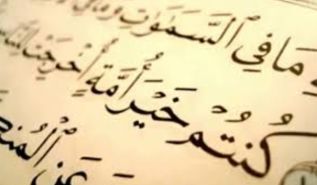 مَا فِي ٱلسَّمَٰوَٰتِ وَمَا فِي
كُنتُمۡ خَيۡرَ أُمَّةٍ أُخۡرِجَتۡ
عَنِ ٱلۡمُنڪَ